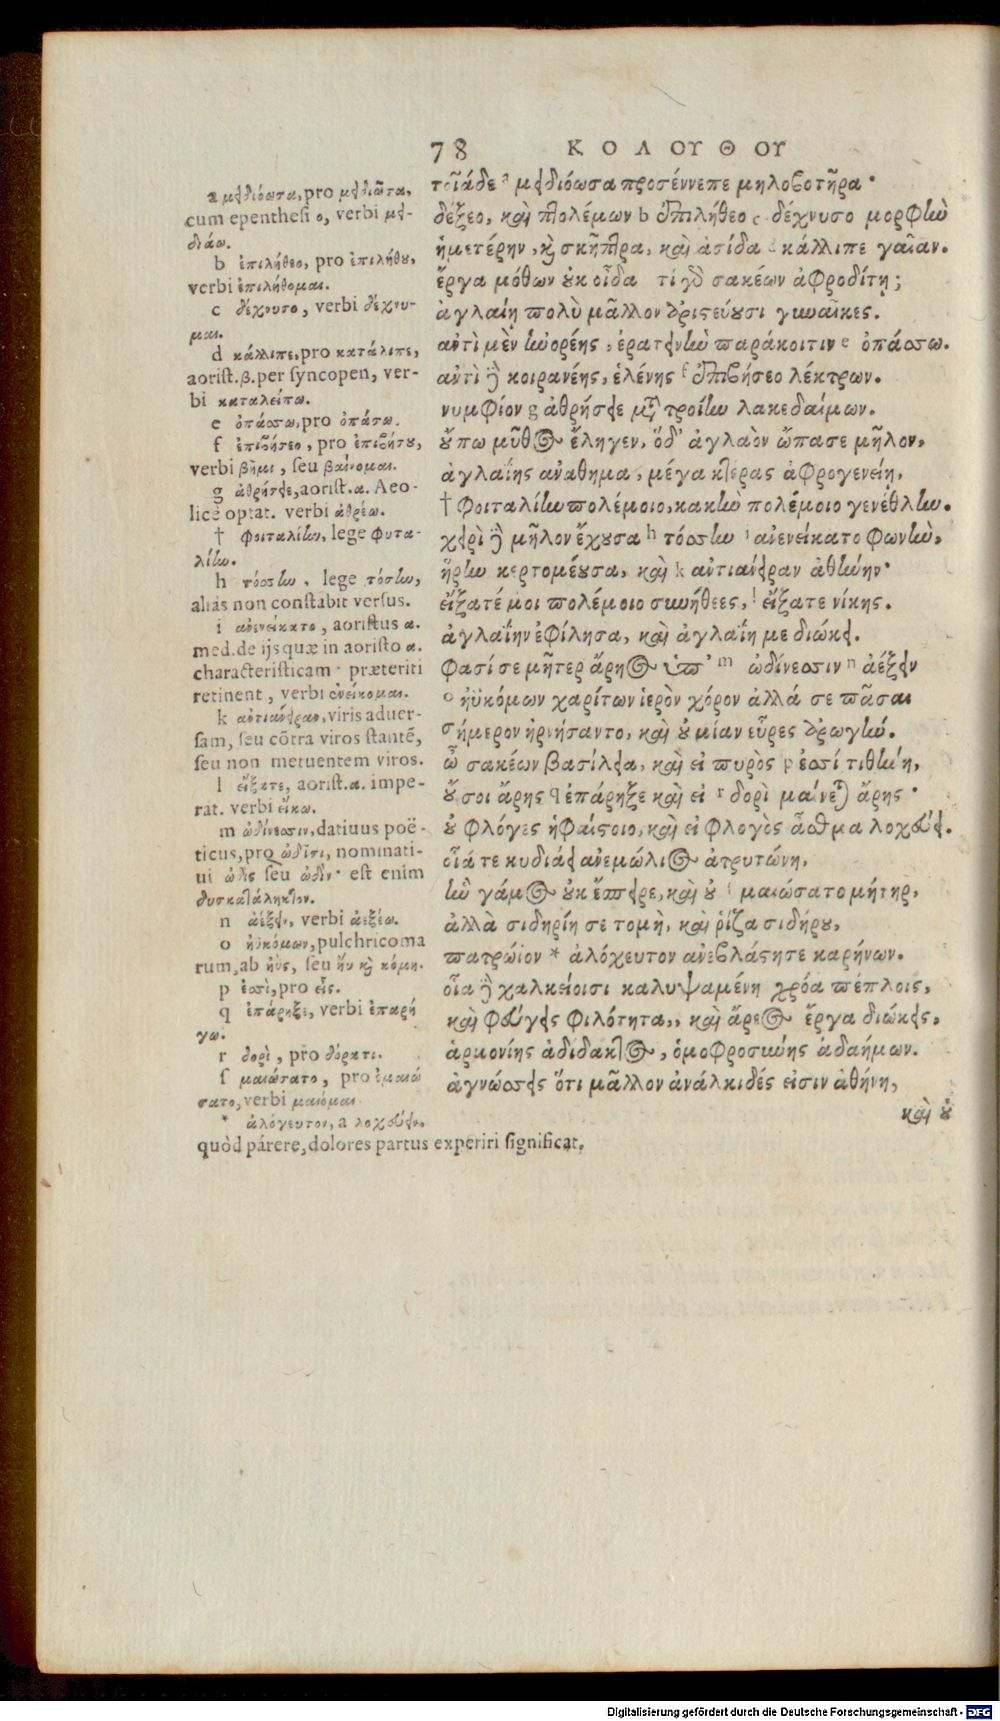 78 ΚΟΛΟΥΘΟΥ
τοῖάδε a μειδιόωσα προσέννεπε μηλοβοτῆρα·
δέξεο, καὶ πολέμων b ἐπιλήθεο c δέχνυσο μορφὴν
ἡμετέρην, καὶ σκῆπτρα, καὶ ἀσίδα d κάλλιπε γαῖαν.
ἔργα μόθων οὐκ οἶδα τί γὸ σακέων ἀφροδίτη;
ἀγλαΐη πολὺ μᾶλλον ἀριστεύουσι γυναῖκες.
ἀντὶ μὲν ἠνορέης, ἐρατεινὴν παράκοιτιν e ὀπάσσω.
ἀντὶ δὲ κοιρανέης, ἑλένης f ἐπιβήσεο λέκτρων.
νυμφίον g ἀθρήσειε μετὰ τροίην λακεδαίμων.
οὔπω μῦθος ἔληγεν, ὅδ' ἀγλαὸν ὤπασε μῆλον,
ἀγλαΐης ἀνάθημα, μέγα κτέρας ἀφρογενείῃ,
† Φοιταλίην πολέμοιο, κακὴν πολέμοιο γενέθλην.
χειρὶ δὲ μῆλον ἔχουσα h τόσσην i ἀνενείκατο φωνὴν,
ἥρην κερτομέουσα, καὶ k ἀντιάνειραν ἀθήνην·
εἴξατέ μοι πολέμοιο συνήθεες, l εἴξατε νίκης.
ἀγλαΐην ἐφίλησα, καὶ ἀγλαΐη με διώκει.
φασί σε μῆτερ ἄρηος ὑπ' m ὠδίνεσσιν n ἀέξειν
o ἠϋκόμων χαρίτων ἱερὸν χόρον ἀλλά σε πᾶσαι
σήμερον ἠρνήσαντο, καὶ οὐ μίαν εὗρες ἀρωγήν.
ὦ σακέων βασίλεια, καὶ εἰ πυρὸς p ἐσσί τιθήνη,
οὔ σοι ἄρης q ἐπάρηξε καὶ εἰ r δορὶ μαίνεται ἄρης·
οὐ φλόγες ἡφαίστοιο, καὶ εἰ φλογὸς ἆσθμα λοχεύει.
οἷά τε κυδιάει ἀνεμώλιος ἀτρυτώνη,
ἣν γάμος οὐκ ἔσπειρε, καὶ οὐ ſ μαιώσατο μήτηρ,
ἀλλὰ σιδηρείη σε τομὴ, καὶ ῥίζα σιδήρου,
πατρώϊον * ἀλόχευτον ἀνεβλάστησε καρήνων.
οἷα δὲ χαλκείοισι καλυψαμένη χρόα πέπλοις,
καὶ φεύγεις φιλότητα,, καὶ ἄρεος ἔργα διώκεις,
ἁρμονίης ἀδίδακτος, ὁμοφροσύνης ἀδαήμων.
ἀγνώσσεις ὅτι μᾶλλον ἀνάλκιδές εἰσιν ἀθήνη,
καὶ οὐ
a μειδιόωσα, pro μειδιῶσα,
cum epenthesi ο, verbi μει-
διάω.
b ἐπιλήθεο, pro ἐπιλήθου,
verbi ἐπιλήθομαι.
c δέχνυσο, verbi δέχνυ-
μαι.
d κάλλιπε, pro κατάλιπε,
aorist. β. per syncopen, ver-
bi καταλείπω.
e ὀπάσσω, pro ὀπάσω.
f ἐπιβήσεο, pro ἐπιβήσου,
verbi βῆμι, seu βαίνομαι.
g ἀθρήσειε, aorist. α. Aeo-
licè optat. verbi ἀθρέω.
† φοιταλίην, lege φυτα-
λίην.
h τόσσην, lege τόσην,
aliàs non constabit versus.
i ἀνενείκατο, aoristus α.
med. de ijs quæ in aoristo α.
characteristicam præteriti
retinent, verbi ἐνείκομαι.
k ἀντιάνειραν, viris aduer-
sam, seu cōtra viros stantē,
seu non metuentem viros.
l εἴξατε, aorist. α. impe-
rat. verbi εἴκω.
m ὠδίνεσσιν, datiuus poë-
ticus, pro ὠδῖσι, nominati-
ui ὠδὶς seu ὠδὶν· est enim
δυσκατάληκτον.
n ἀέξειν, verbi ἀεξέω.
o ἠϋκόμων, pulchricoma
rum, ab ἠῢς, seu ἠῢ καὶ κόμη.
p ἐσσὶ, pro εἶς.
q ἐπάρηξε, verbi ἐπαρή
γω.
r δορὶ, pro δόρατι.
ſ μαιώσατο, pro ἐμαιώ
σατο, verbi μαιόμαι.
* ἀλόχευτον, a λοχεύειν.
quòd párere, dolores partus experiri significat.
Digitalisierung gefördert durch die Deutsche Forschungsgemeinschaft - DFG